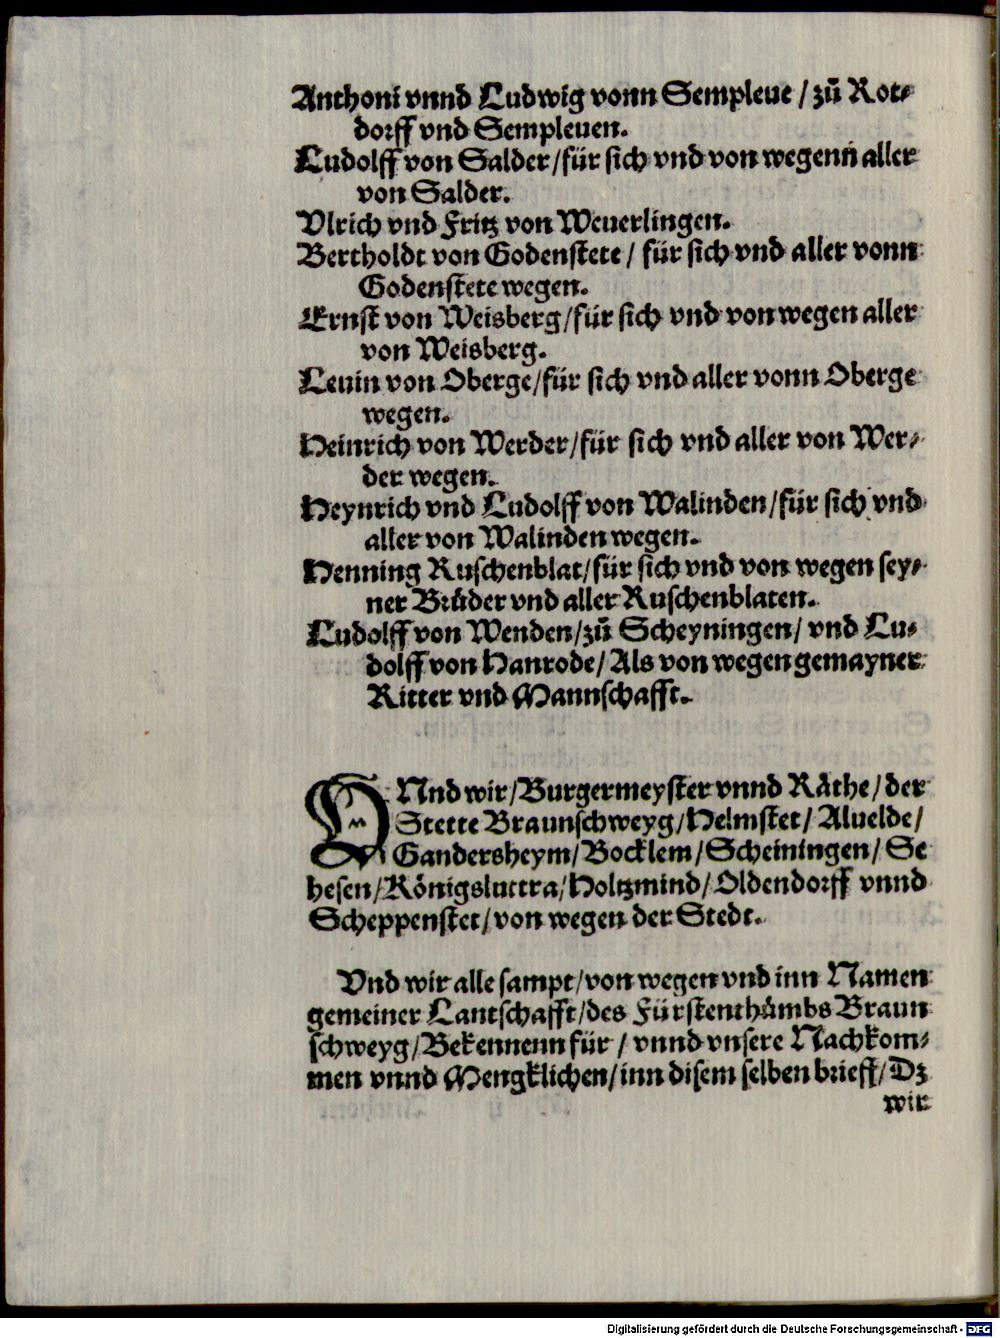 Anthoni vnnd Ludwig vonn Sempleue / zů Rot⸗
dorff vnd Sempleuen.
Ludolff von Salder/für sich vnd von wegenn aller
von Salder.
Vlrich vnd Fritz von Weuerlingen.
Bertholdt von Godenstete / für sich vnd aller vonn
Godenstete wegen.
Ernst von Weisberg/für sich vnd von wegen aller
von Weisberg.
Leuin von Oberge/für sich vnd aller vonn Oberge
wegen.
Heinrich von Werder/für sich vnd aller von Wer⸗
der wegen.
Heynrich vnd Ludolff von Walinden/für sich vnd
aller von Walinden wegen.
Henning Ruschenblat/für sich vnd von wegen sey⸗
ner Brůder vnd aller Ruschenblaten.
Ludolff von Wenden/zů Scheyningen/ vnd Lu⸗
dolff von Hanrode/Als von wegen gemayner
Ritter vnd Mannschafft.
VNnd wir/Burgermeyster vnnd Räthe/der
Stette Braunschweyg/Helmstet/Aluelde/
Gandersheym/Bocklem/Scheiningen/Se
hesen/Königsluttra/Holtzmind/Oldendorff vnnd
Scheppenstet/von wegen der Stedt.
Vnd wir alle sampt/von wegen vnd inn Namen
gemeiner Lantschafft/des Fürstenthůmbs Braun
schweyg/Bekennenn für / vnnd vnsere Nachkom⸗
men vnnd Mengklichen/inn disem selben brieff/Dz
wir
Digitalisierung gefördert durch die Deutsche Forschungsgemeinschaft - DFG